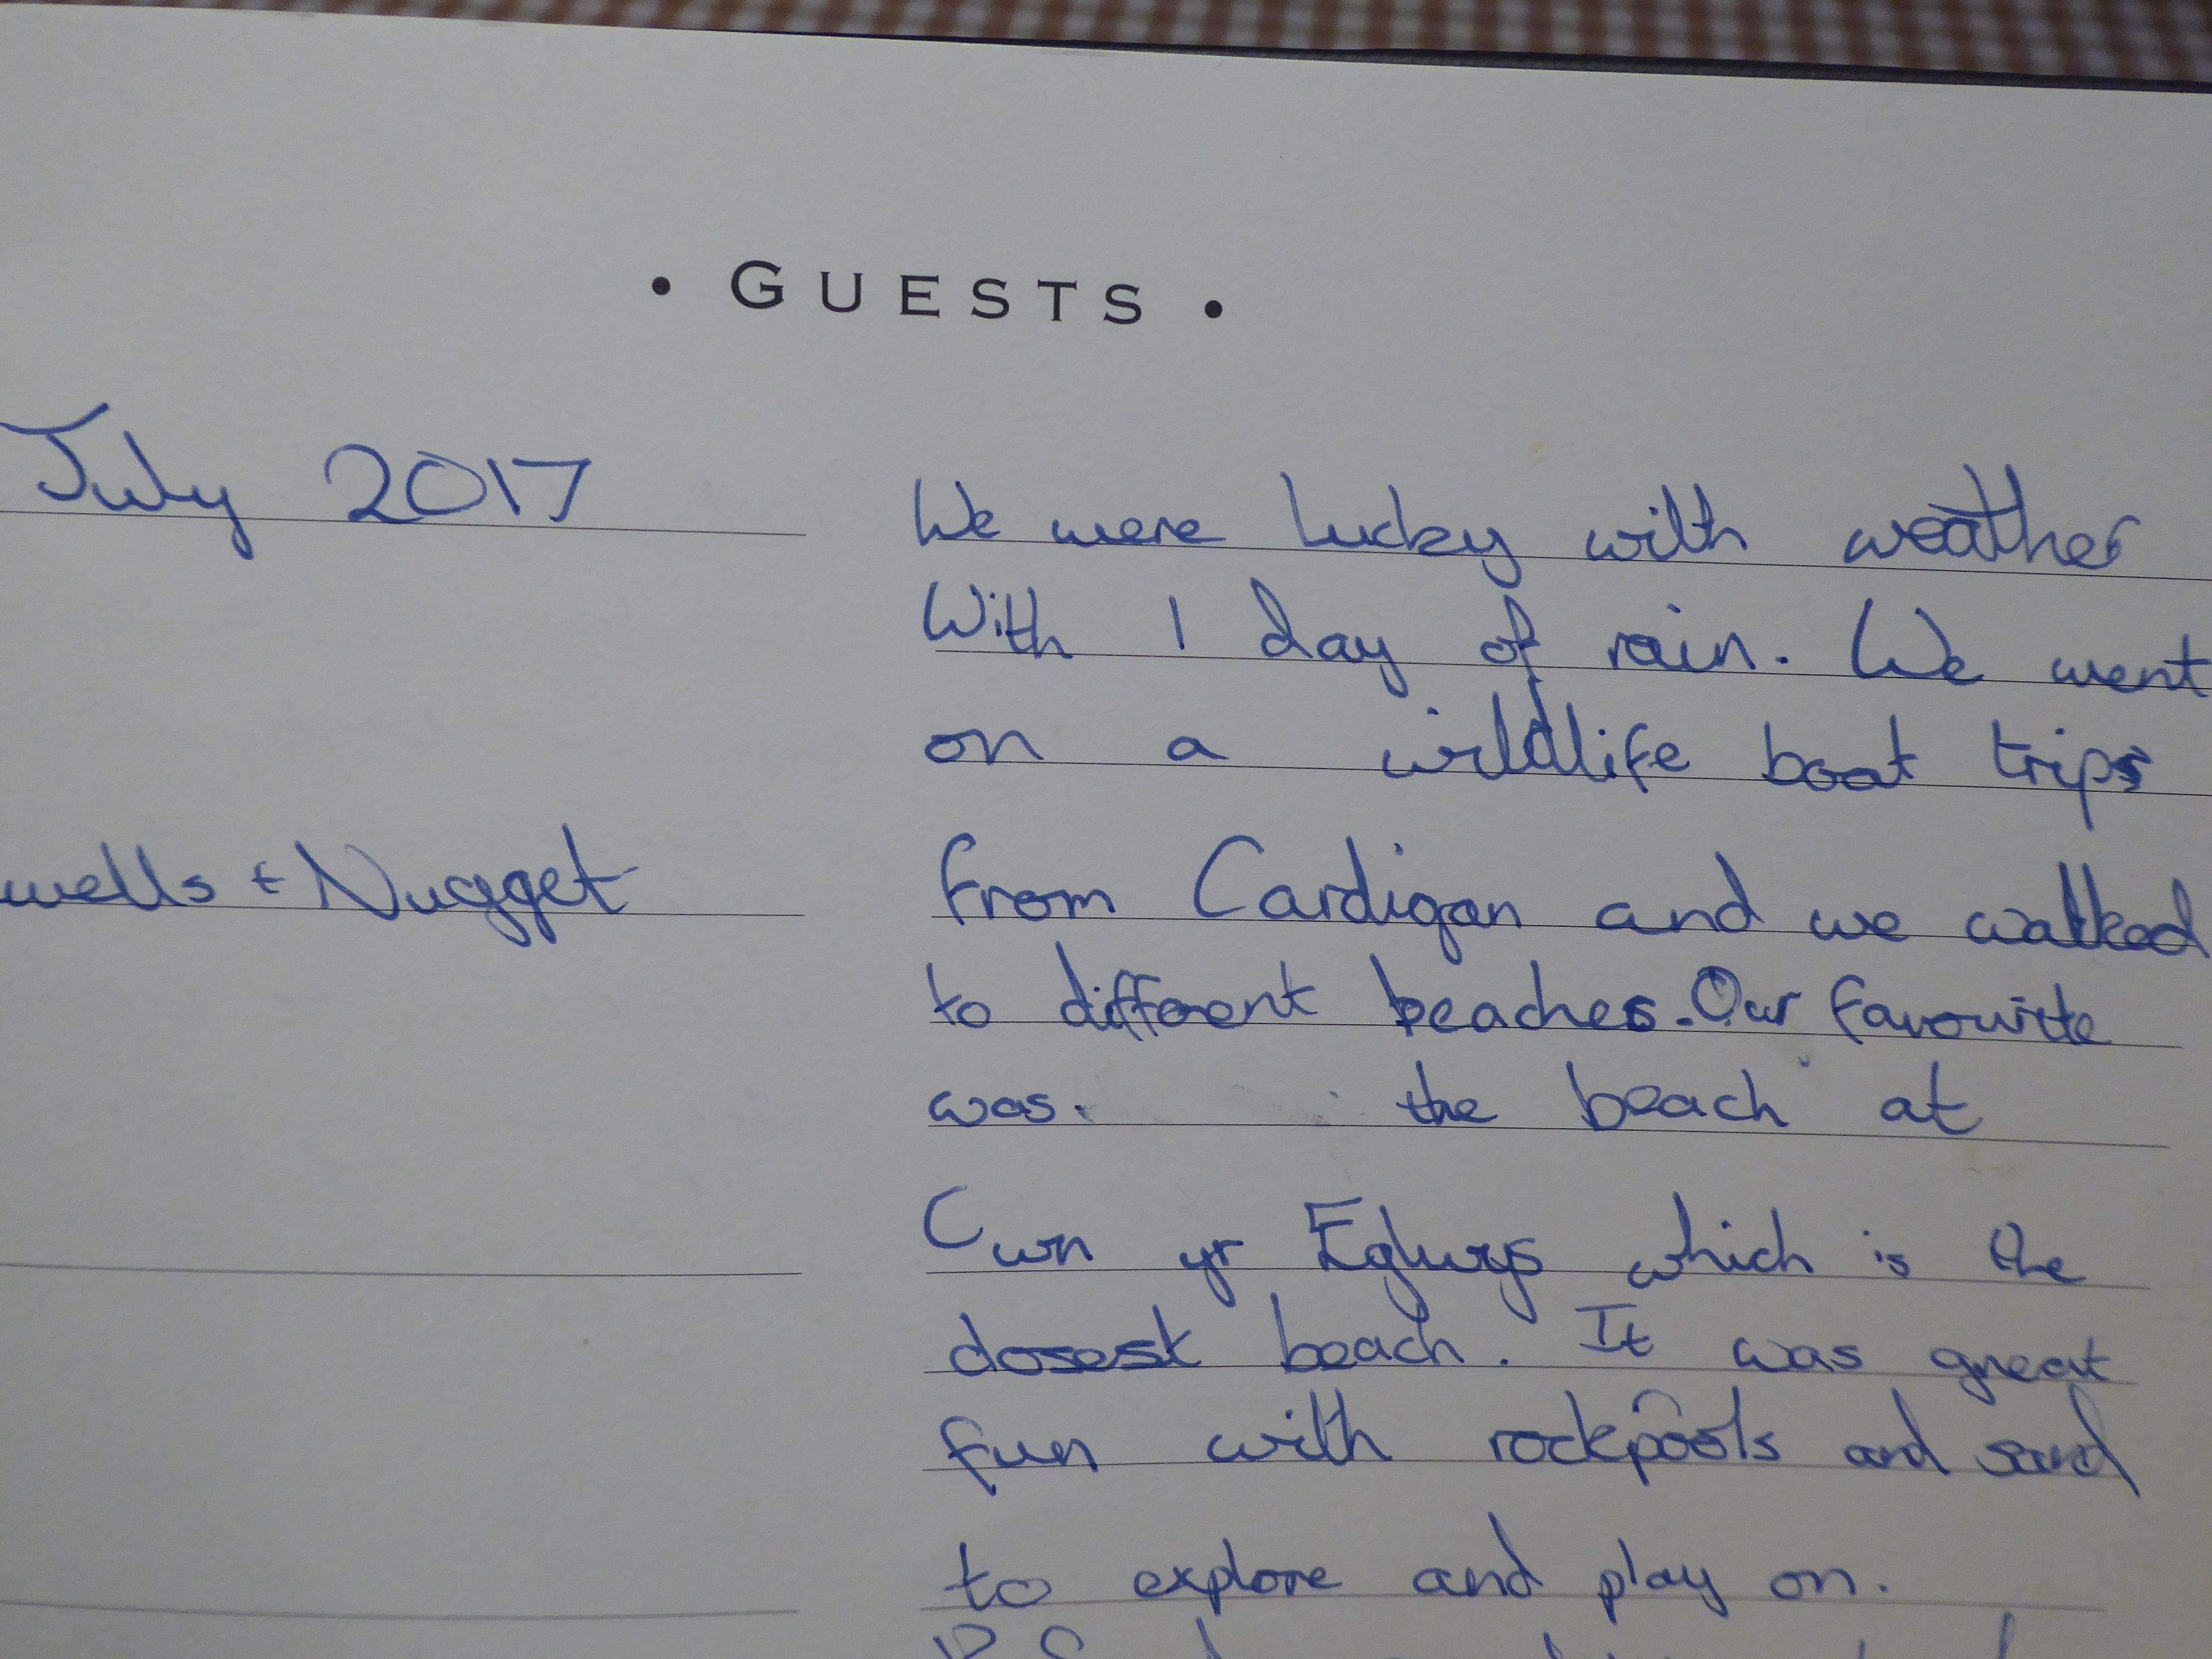 • GUESTS •
July 2017
We were lucky with weather
With 1 day of rain. We went
on a wildlife boat trips
wells + Nugget
from Cardigan and we walked
to different beaches. Our favourite
was. the beach at
Cwn yr Eglwys which is the
closest beach. It was great
fun with rockpools and sand
to explore and play on.